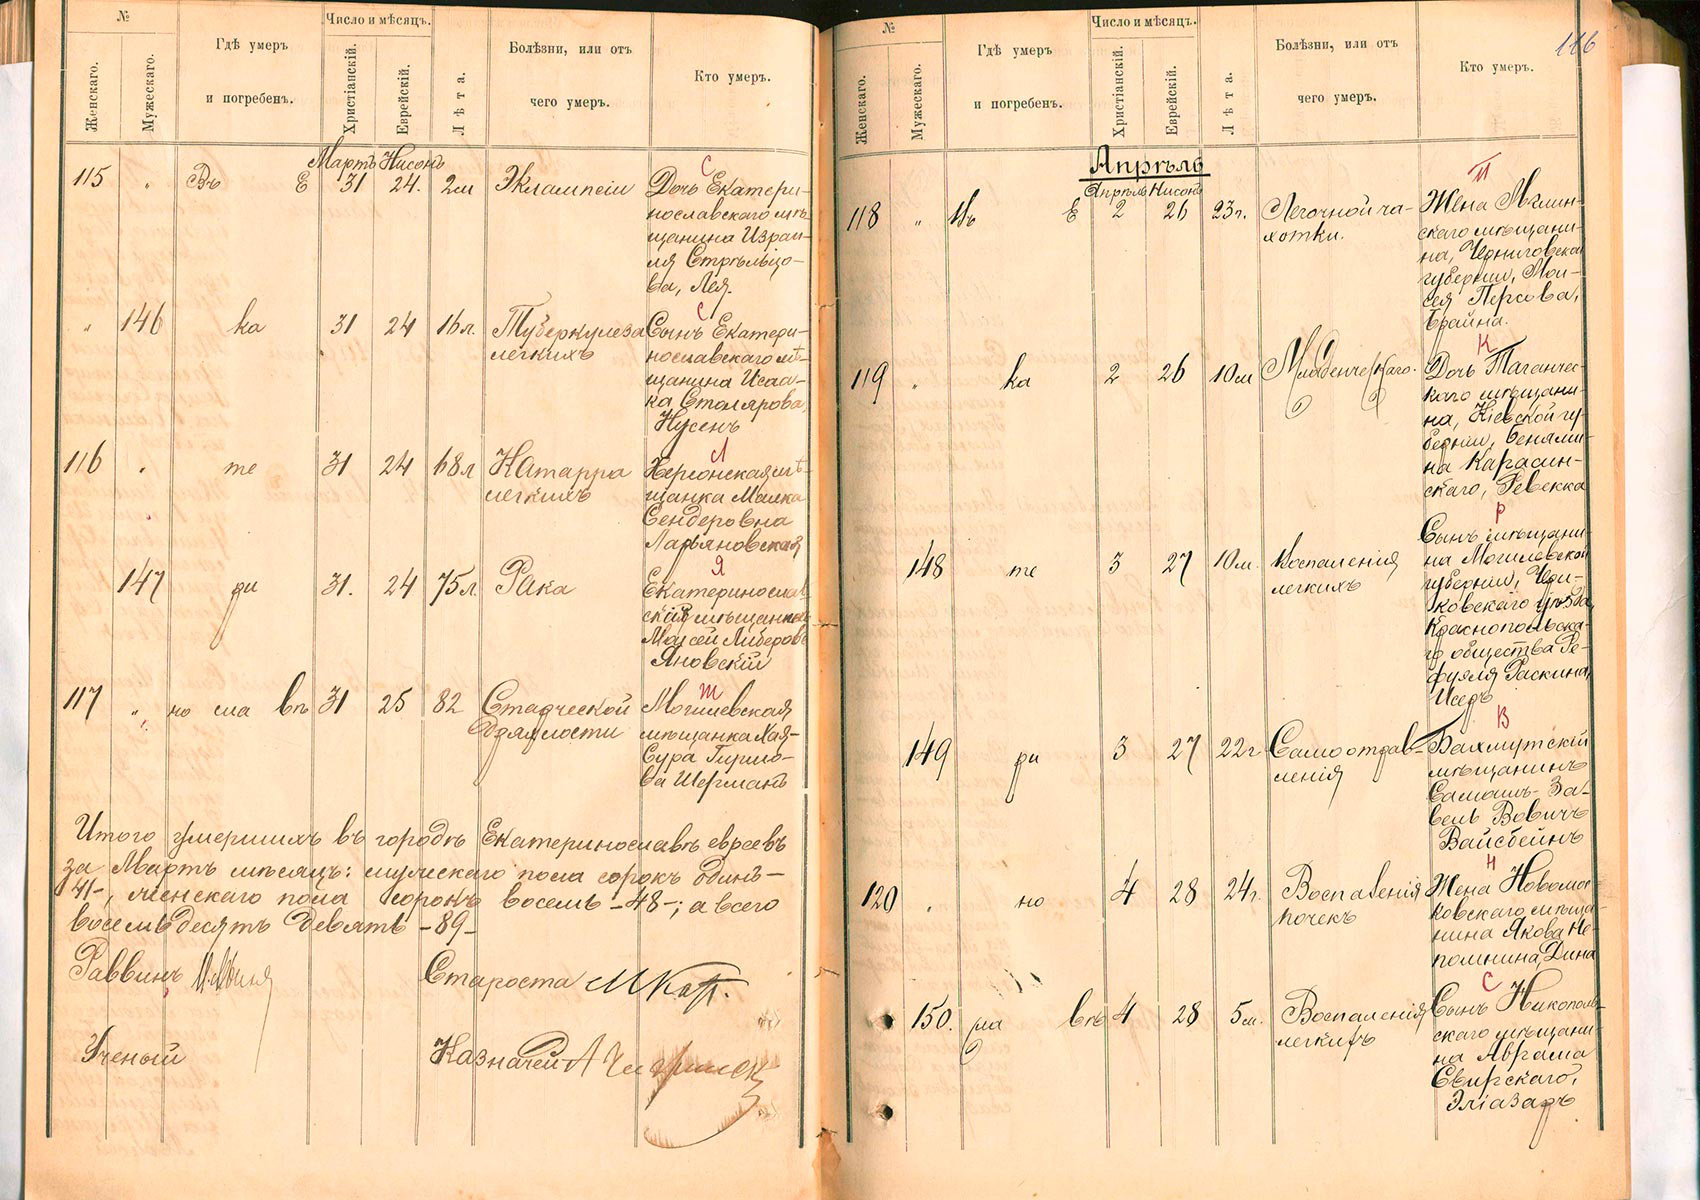 №
Женскаго.
Мужескаго.
Гдѣ умеръ
и погребенъ.
Число и мѣсяцъ.
Христіанскій.
Еврейскій.
Лѣта.
Болѣзни, или отъ
чего умеръ.
Кто умеръ.
Мартъ Нисонъ
115 " Въ Е 31 24. 2м Эклампсіи
С
Дочь Екатери-
нославскаго мѣ-
щанина Израи-
ля Стрѣльцо-
ва, Лея.
" 146 ка 31 24 16л. Туберкулеза
легкихъ
С
Сынъ Екатери-
нославскаго мѣ-
щанина Исаа-
ка Столярова,
Нусенъ
116 " те 31 24 68л Катарра
легкихъ
Л
Херсонская мѣ-
щанка Малка
Сендеровна
Ларьяновская
147 ри 31. 24 75л Рака
Я
Екатеринослав-
скій мѣщанинъ
Мовсей Либеровъ
Яновскій
117 " но сла вѣ 31 25 82 Старческой
дряхлости
Ш
Могилевская
мѣщанка Хая-
Сура Гиршо-
ва Шерманъ
Итого умершихъ въ городѣ Екатеринославѣ евреевъ
за Мартъ мѣсяцъ: мужескаго пола сорокъ одинъ -
41-, женскаго пола сорокъ восемь -48-; а всего
восемьдесятъ девять -89-
Раввинъ
Староста
Ученый
Казначей
116
№
Женскаго.
Мужескаго.
Гдѣ умеръ
и погребенъ.
Число и мѣсяцъ.
Христіанскій.
Еврейскій.
Лѣта.
Болѣзни, или отъ
чего умеръ.
Кто умеръ.
Апрѣль
Апрѣль Нисонъ
118 " Въ Е 2 26 23г. Легочной ча-
хотки.
П
Жена Мглин-
скаго мѣщани-
на, Черниговской
губерніи, Мои-
сея Персова,
Брайна.
119 " ка 2 26 10м Младенческаго.
К
Дочь Таганчес-
каго мѣщани-
на, Кіевской гу-
берніи, Бенями-
на Карасин-
скаго, Ревекка
148 те 3 27 10м. Воспаленія
легкихъ
Р
Сынъ мѣщани-
на Могилевской
губерніи, Чери-
ковскаго уѣзда,
Краснопольска-
го общества Ре-
фуэля Раскина,
149 ри 3 27 22г Самоотрав-
ленія
В
Бахмутскій
мѣщанинъ
Самоилъ-За-
вель Вовичъ
Вайсбейнъ
120 " но 4 28 24г. Воспаленія
почекъ
Н
Жена Новомос-
ковскаго мѣща-
нина Якова Не-
помнина, Дина
150. сла вѣ 4 28 5м. Воспаленія
легкихъ
С
Сынъ Никополь-
скаго мѣщани-
на Аврама
Свирскаго,
Эліазаръ